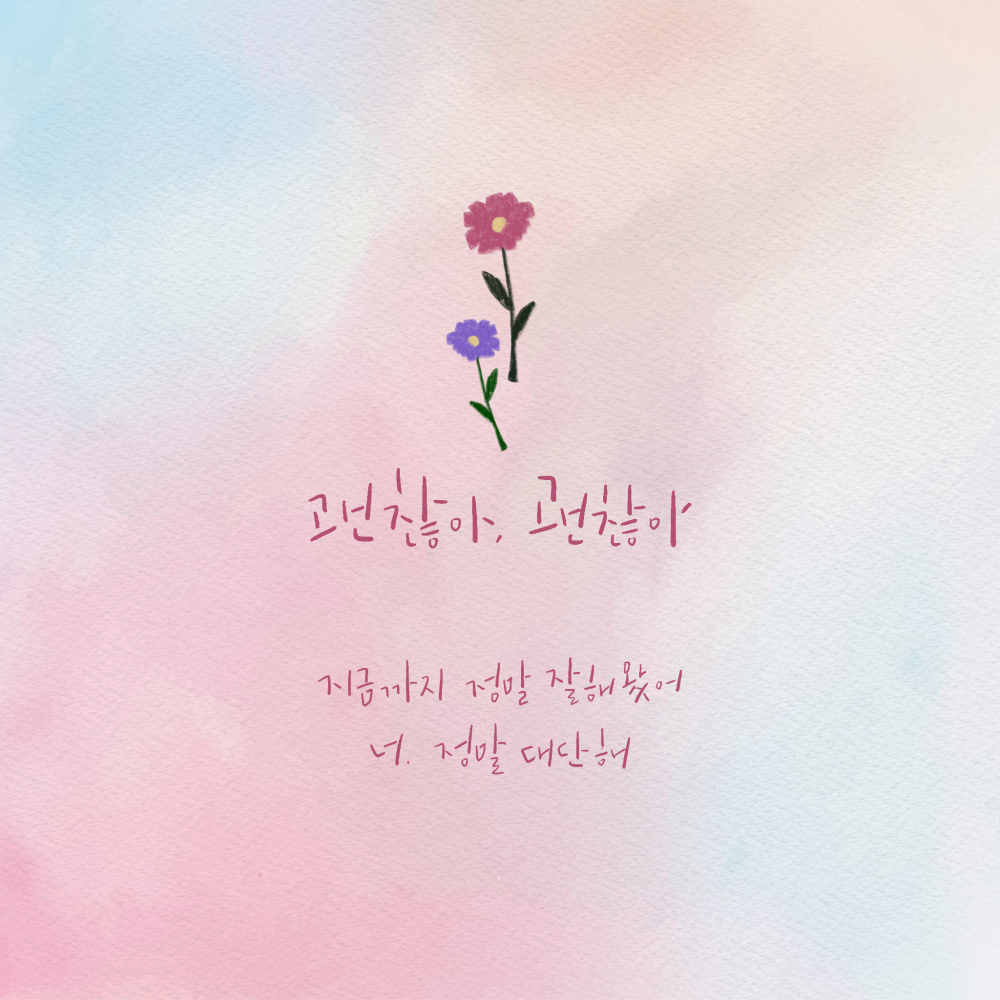 괜찮아, 괜찮아
지금까지 정말 잘해왔어
너. 정말 대단해